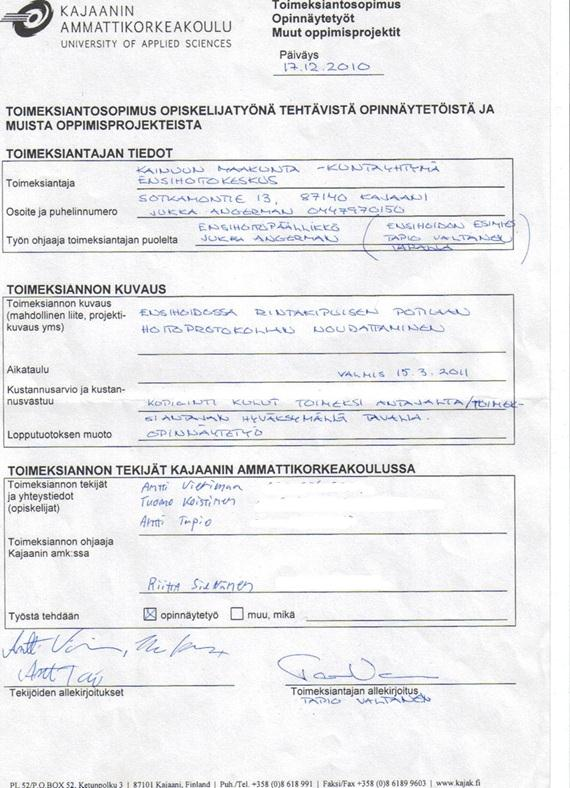 KAJAANIN
AMMATTIKORKEAKOULU
UNIVERSITY OF APPLIED SCIENCES
Toimeksiantosopimus
Opinnäytetyöt
Muut oppimisprojektit
Päiväys
17.12.2010
TOIMEKSIANTOSOPIMUS OPISKELIJATYÖNÄ TEHTÄVISTÄ OPINNÄYTETÖISTÄ JA
MUISTA OPPIMISPROJEKTEISTA
TOIMEKSIANTAJAN TIEDOT
KAINUUN MAAKUNTA -KUNTAYHTYMÄ
Toimeksiantaja ENSIHOITOKESKUS
SOTKAMONTIE 13, 87140 KAJAANI
Osoite ja puhelinnumero JUKKA ANGERMAN 0447970150
ENSIHOITOPÄÄLLIKKÖ (ENSIHOIDON ESIMIES
Työn ohjaaja toimeksiantajan puolelta JUKKA ANGERMAN TAPIO VALTANEN
TOIMEKSIANNON KUVAUS
Toimeksiannon kuvaus
(mahdollinen liite, projekti-
kuvaus yms)
ENSIHOIDOSSA RINTAKIPUISEN POTILAAN
HOITOPROTOKOLLAN NOUDATTAMINEN
Aikataulu VALMIS 15.3.2011
Kustannusarvio ja kustan-
nusvastuu
KOPIOINTI KULUT TOIMEKSI ANTAJALTA/TOIMEK-
SIANTAJAN HYVÄKSYMÄLLÄ TAVALLA.
Lopputuotoksen muoto OPINNÄYTETYÖ
TOIMEKSIANNON TEKIJÄT KAJAANIN AMMATTIKORKEAKOULUSSA
Toimeksiannon tekijät
ja yhteystiedot
(opiskelijat)
Antti
Tuomo Koistinen
Antti Tapio
Toimeksiannon ohjaaja
Kajaanin amk:ssa
Riitta
Työstä tehdään ☒ opinnäytetyö ☐ muu, mikä
Tekijöiden allekirjoitukset
Toimeksiantajan allekirjoitus
TAPIO VALTANEN
PL 52/P.O.BOX 52, Ketunpolku 3 | 87101 Kajaani, Finland | Puh./Tel. +358 (0)8 618 991 | Faksi/Fax +358 (0)8 6189 9603 | www.kajak.fi